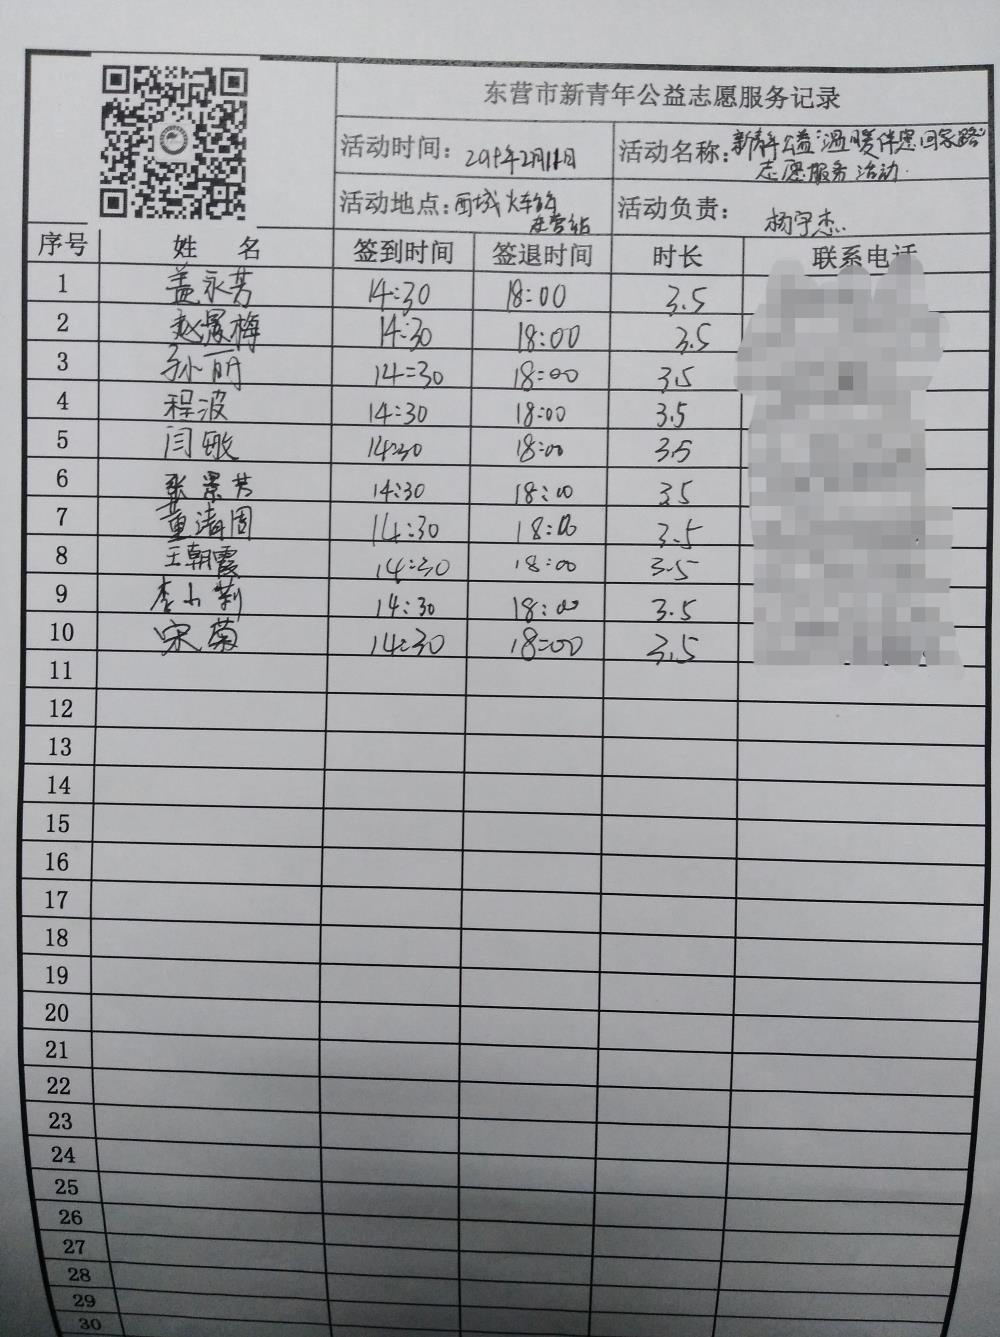 东营市新青年公益志愿服务记录
活动时间：2019年2月11日
活动名称：新青年公益“温暖伴您回家路”
志愿服务活动
活动地点：西城火车站
东营站
活动负责：杨宇杰
序号 姓 名 签到时间 签退时间 时长 联系电话
1 盖永芳 14:30 18:00 3.5
2 赵晨梅 14:30 18:00 3.5
3 孙丽 14:30 18:00 3.5
4 程波 14:30 18:00 3.5
5 闫敏 14:30 18:00 3.5
6 张景芳 14:30 18:00 3.5
7 董清国 14:30 18:00 3.5
8 王朝霞 14:30 18:00 3.5
9 李小莉 14:30 18:00 3.5
10 宋菊 14:30 18:00 3.5
11
12
13
14
15
16
17
18
19
20
21
22
23
24
25
26
27
28
29
30